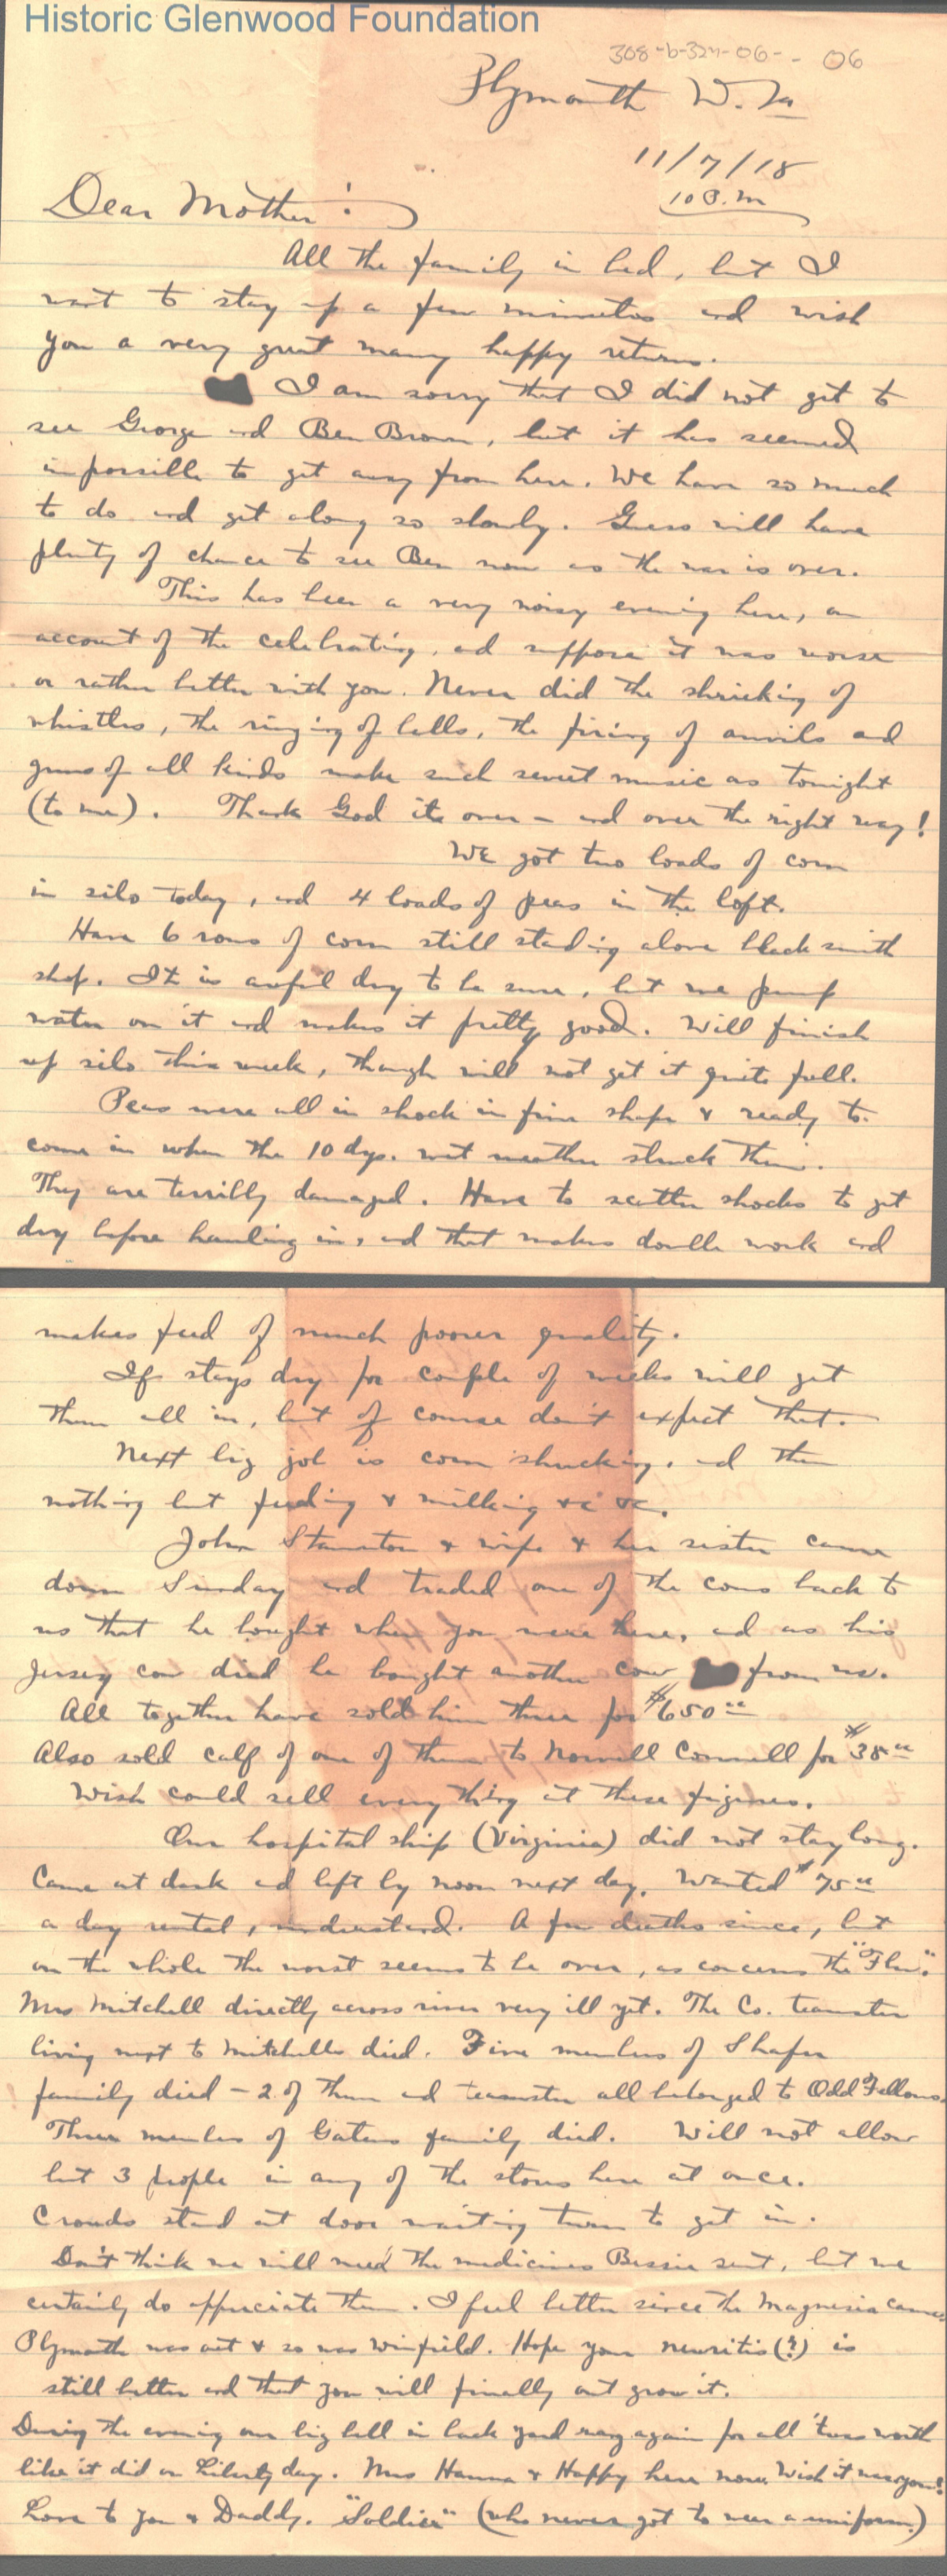 Historic Glenwood Foundation
308-b-324-06-- 06
Plymouth W. Va
11/7/18
10 P.M
Dear Mother:
All the family in bed, but I
want to stay up a few minutes and wish
you a very great many happy returns.
I am sorry that I did not get to
see George and Ben Brown, but it has seemed
impossible to get away from here. We have so much
to do and get along so slowly. Guess will have
plenty of chance to see Ben now as the war is over.
This has been a very noisy evening here, on
account of the celebrating, and suppose it was worse
or rather better with you. Never did the shrieking of
whistles, the ringing of bells, the firing of anvils and
guns of all kinds make such sweet music as tonight
(to me). Thank God its over - and over the right way!
We got two loads of corn
in silo today, and 4 loads of peas in the loft.
Have 6 rows of corn still standing above black smith
shop. It is awful dry to be sure, but we pump
water on it and makes it pretty good. Will finish
up silo this week, though will not get it quite full.
Peas were all in shock in fine shape & ready to
come in when the 10 dys. wet weather struck them.
They are terribly damaged. Have to scatter shocks to get
dry before hauling in, and that makes double work and
makes feed of much poorer quality.
If stays dry for couple of weeks will get
them all in, but of course don't expect that.
Next big job is corn shucking, and then
nothing but feeding & milking &c &c.
John Staunton & wife & her sister came
down Sunday and traded one of the cows back to
us that he bought when you were here, and as his
Jersey cow died he bought another cow from us.
All together have sold him three for $650.00
Also sold calf of one of them to Norvell Connell for $38.00
Wish could sell every thing at these figures.
Our hospital ship (Virginia) did not stay long.
Came at dark and left by noon next day. Wanted $75.00
a day rental, understand. A few deaths since, but
on the whole the worst seems to be over, as concerns the "Flu".
Mrs Mitchell directly across river very ill yet. The Co. teamster
living next to Mitchells died. Five members of Shafer
family died - 2 of them and teamster all belonged to Odd Fellows.
Three members of Gatens family died. Will not allow
but 3 people in any of the stores here at once.
Crowds stand at door waiting turn to get in.
Don't think we will need the medicines Bessie sent, but we
certainly do appreciate them. I feel better since the Magnesia came.
Plymouth was out & so was Winfield. Hope your neuritis (?) is
still better and that you will finally out grow it.
During the evening our big bell in back yard rang again for all 'twas worth
like it did on Liberty day. Mrs Hanna & Happy here now. Wish it was you!
Love to you & Daddy. "Soldier" (who never got to wear a uniform.)